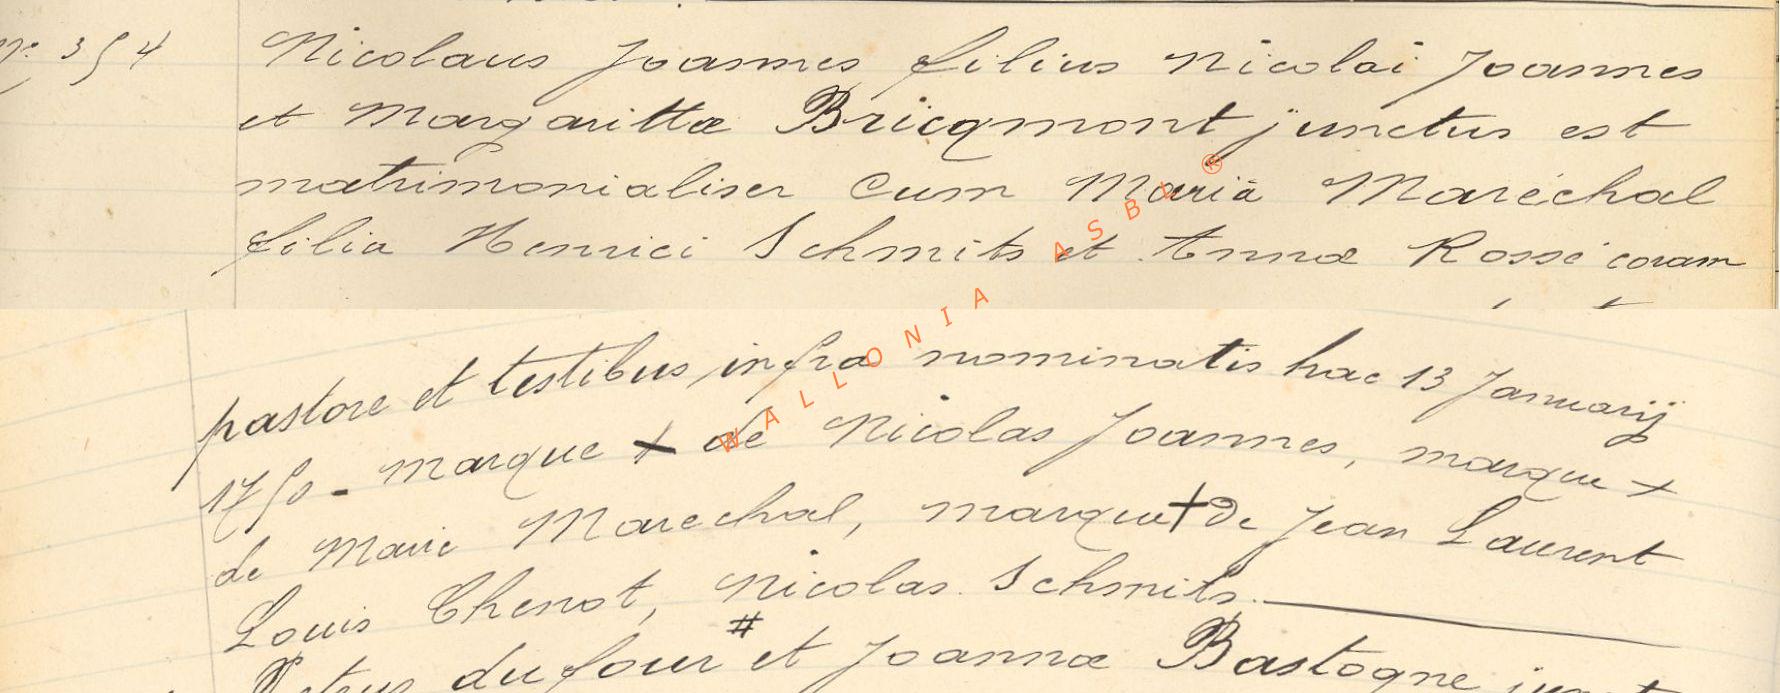 N° 354 Nicolaus Joannes filius Nicolai Joannes
et Margarittæ Bricqmont junctus est
matrimonialiser cum Maria Maréchal
filia Henrici Schmits et Annæ Rossé coram
pastore et testibus infra nominatis hac 13 Januarij
1750 - marque + de Nicolas Joannes, marque +
de Marie Marechal, marque + de Jean Laurent
Louis Chenot, Nicolas Schmits.
#
Petrus du four et Joanna Bastogne
WALLONIA ASBL ®